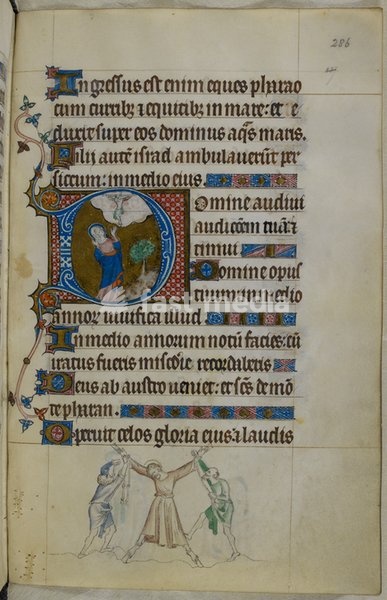 286
Ingressus est enim eques pharao
cum curribz ⁊ equitibz in mare: et re
duxit super eos dominus aqs maris.
Filii aute israel ambulauerut per
siccum: in medio eius.
Domine audiui
audicoem tua: ⁊
timui
Domine opus
tuum: in medio
annor uiuifica illud
In medio annorum notu facies: cu
iratus fueris miscdie recordaberis
Deus ab austro ueniet: et scs de mo
te pharan.
Operuit celos gloria eius: ⁊ laudis